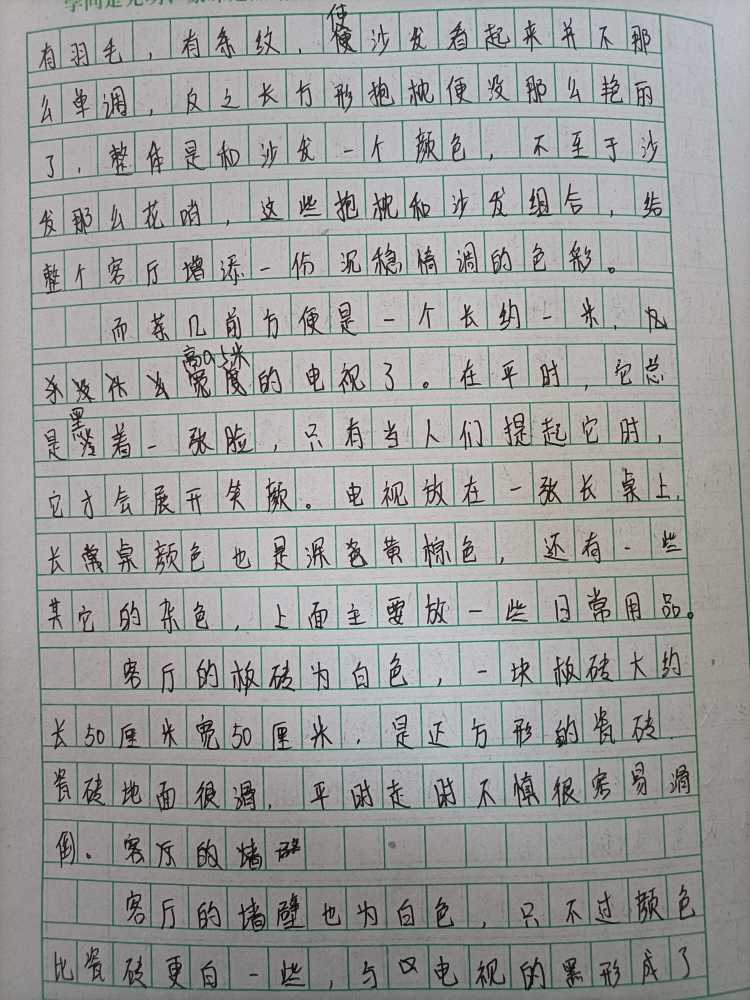 有羽毛，有条纹，使沙发看起来并不那
么单调，反之长方形抱枕便没那么艳的
了，整体是和沙发一个颜色，不至于沙
发那么花哨，这些抱枕和沙发组合，给
整个客厅增添一份沉稳情调的色彩。
而茶几前方便是一个长约一米，
高0.5米宽度的电视了。在平时，它总
是黑着一张脸，只有当人们提起它时，
它才会展开笑颜。电视放在一张长桌上，
长桌颜色也是深黄棕色，还有一些
其它的杂色，上面主要放一些日常用品。
客厅的板砖为白色，一块板砖大约
长50厘米宽50厘米，是正方形的瓷砖，
瓷砖地面很滑，平时走时不慎很容易滑
倒。客厅的墙
客厅的墙壁也为白色，只不过颜色
比瓷砖更白一些，与电视的黑形成了